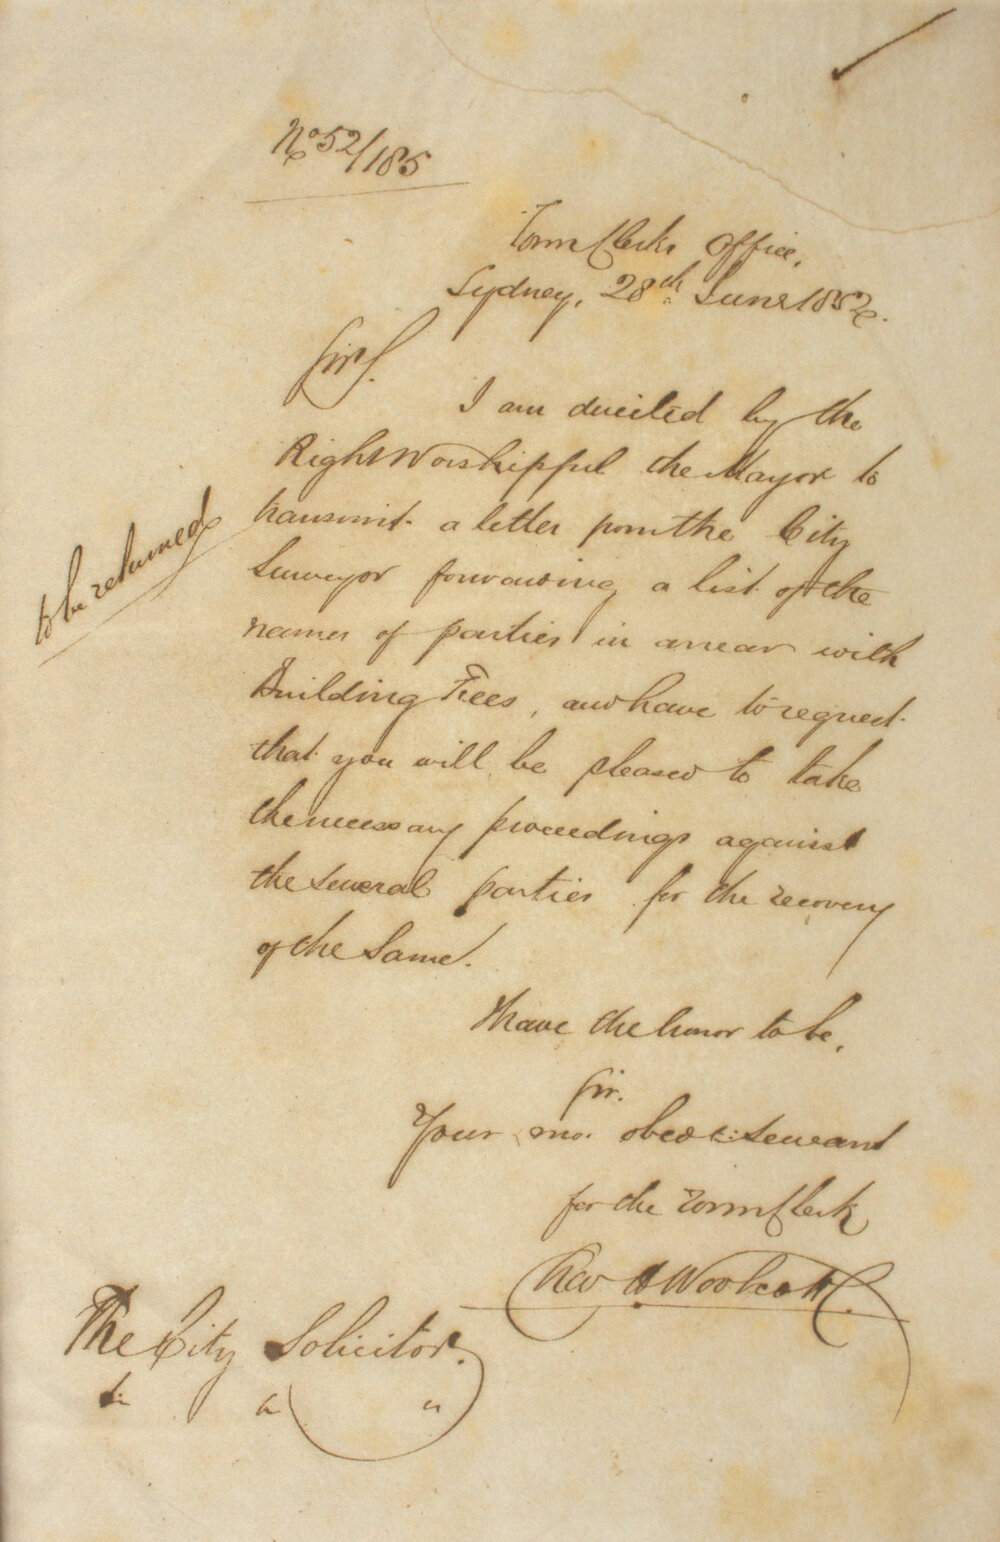 No 52/185
Town Clerks Office,
Sydney, 28th June 1852.
Sir,
I am directed by the
Right Worshipful the Mayor to
transmit a letter from the City
Surveyor forwarding a list of the
names of parties in arrear with
Building Fees, and have to request
that you will be pleased to take
the necessary proceedings against
the several parties for the recovery
of the Same.
to be returned
I have the honor to be,
Sir.
Your mo. obedt. Servant
for the Town Clerk
Chas H Woolcott
The City Solicitor.